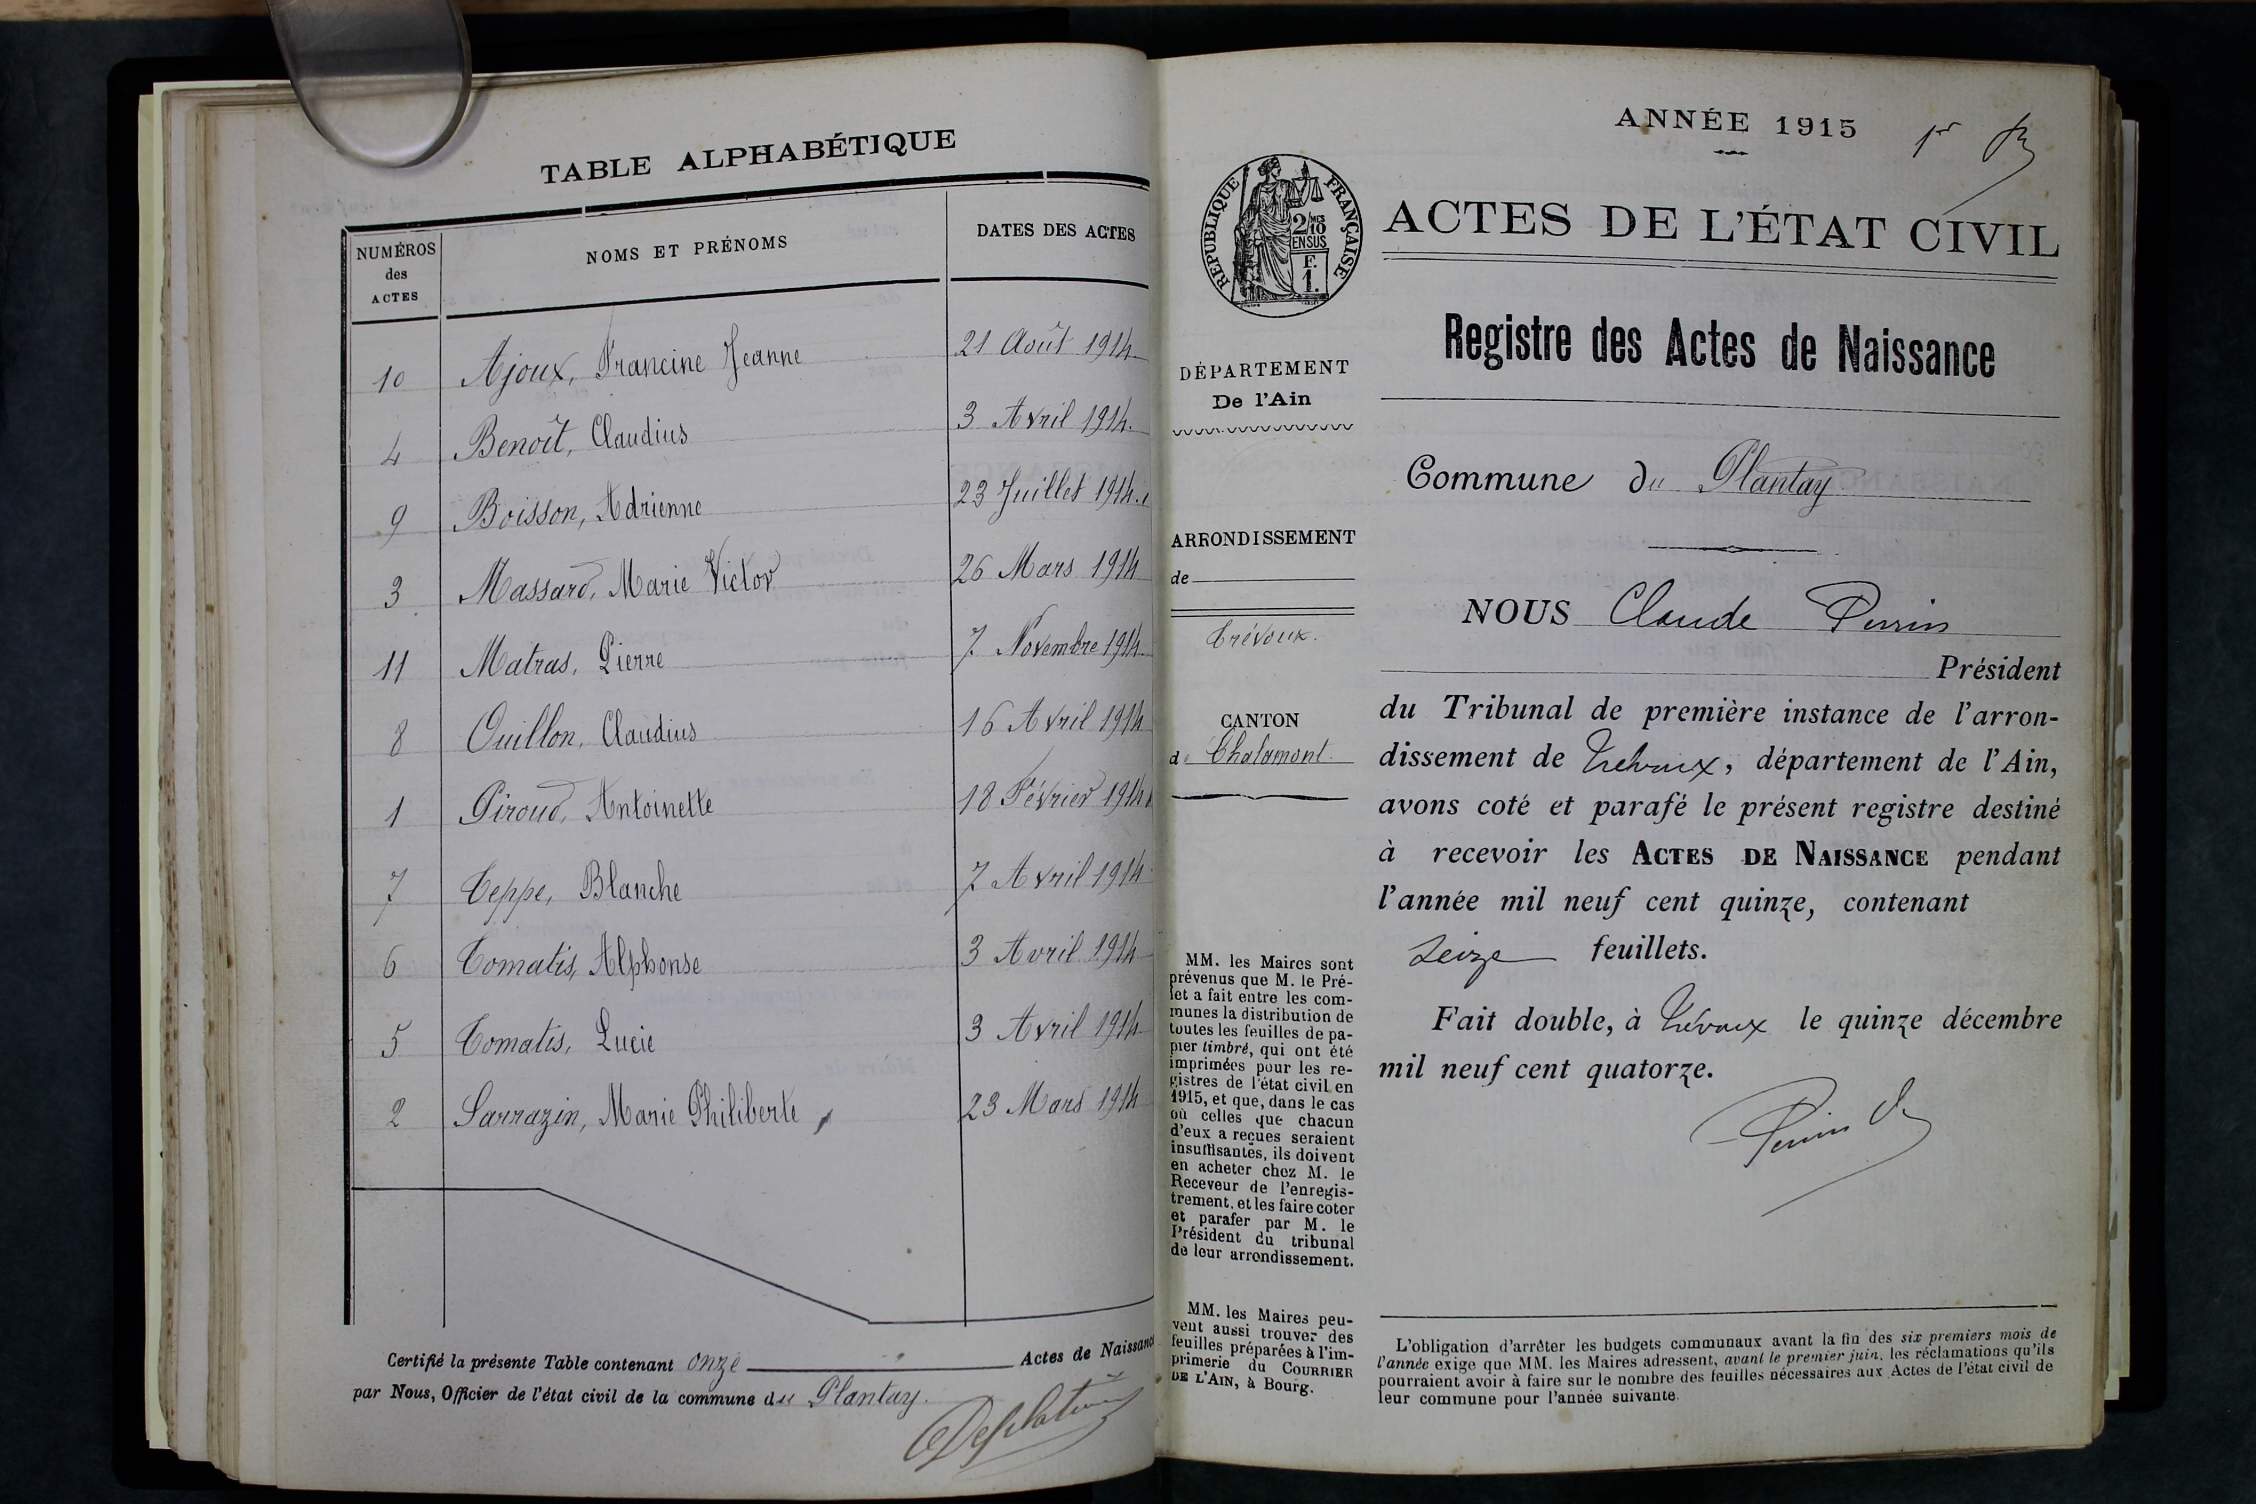 TABLE ALPHABÉTIQUE
NUMÉROS des ACTES
NOMS ET PRÉNOMS
DATES DES ACTES
10 Ajoux, Francine Jeanne 21 Août 1914
4 Benoît, Claudius 3 Avril 1914.
9 Boisson, Adrienne 23 Juillet 1914.
3 Massard, Marie Victor 26 Mars 1914
11 Matras, Pierre 7 Novembre 1914
8 Ouillon, Claudius 16 Avril 1914
1 Piroud, Antoinette 18 Février 1914
7 Teppe, Blanche 7 Avril 1914
6 Comatis, Alphonse 3 Avril 1914
5 Comatis, Lucie 3 Avril 1914
2 Sarrazin, Marie Philiberte 23 Mars 1914
Certifié la présente Table contenant onze Actes de Naissance
par Nous, Officier de l'état civil de la commune du Plantay.
ANNÉE 1915
1er
RÉPUBLIQUE FRANÇAISE
2/10 MES
EN SUS
F.
1.
ACTES DE L'ÉTAT CIVIL
Registre des Actes de Naissance
DÉPARTEMENT
De l'Ain
ARRONDISSEMENT
de
Trévoux.
CANTON
de Chalamont
MM. les Maires sont
prévenus que M. le Pré-
fet a fait entre les com-
munes la distribution de
toutes les feuilles de pa-
pier timbré, qui ont été
imprimées pour les re-
gistres de l'état civil en
1915, et que, dans le cas
où celles que chacun
d'eux a reçues seraient
insuffisantes, ils doivent
en acheter chez M. le
Receveur de l'enregis-
trement, et les faire coter
et parafer par M. le
Président du tribunal
de leur arrondissement.
MM. les Maires peu-
vent aussi trouver des
feuilles préparées à l'im-
primerie du COURRIER
DE L'AIN, à Bourg.
Commune du Plantay
NOUS Claude Perrin
Président
du Tribunal de première instance de l'arron-
dissement de Trévoux, département de l'Ain,
avons coté et parafé le présent registre destiné
à recevoir les ACTES DE NAISSANCE pendant
l'année mil neuf cent quinze, contenant
seize feuillets.
Fait double, à Trévoux le quinze décembre
mil neuf cent quatorze.
Perrin
L'obligation d'arrêter les budgets communaux avant la fin des six premiers mois de
l'année exige que MM. les Maires adressent, avant le premier juin, les réclamations qu'ils
pourraient avoir à faire sur le nombre des feuilles nécessaires aux Actes de l'état civil de
leur commune pour l'année suivante.